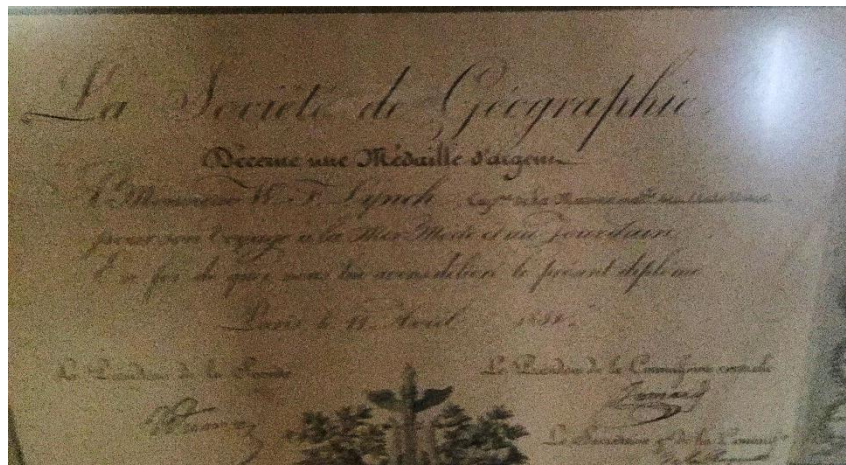 La Société de Géographie
Décerne une Médaille d'argent
A Monsieur W. F. Lynch
pour son Voyage à la Mer Morte et au Jourdain
En foi de quoi nous lui avons délivré le présent diplôme
Paris le Avril
Le Président de la Société
Le Président de la Commission centrale
Jomard
Le Secrétaire de la